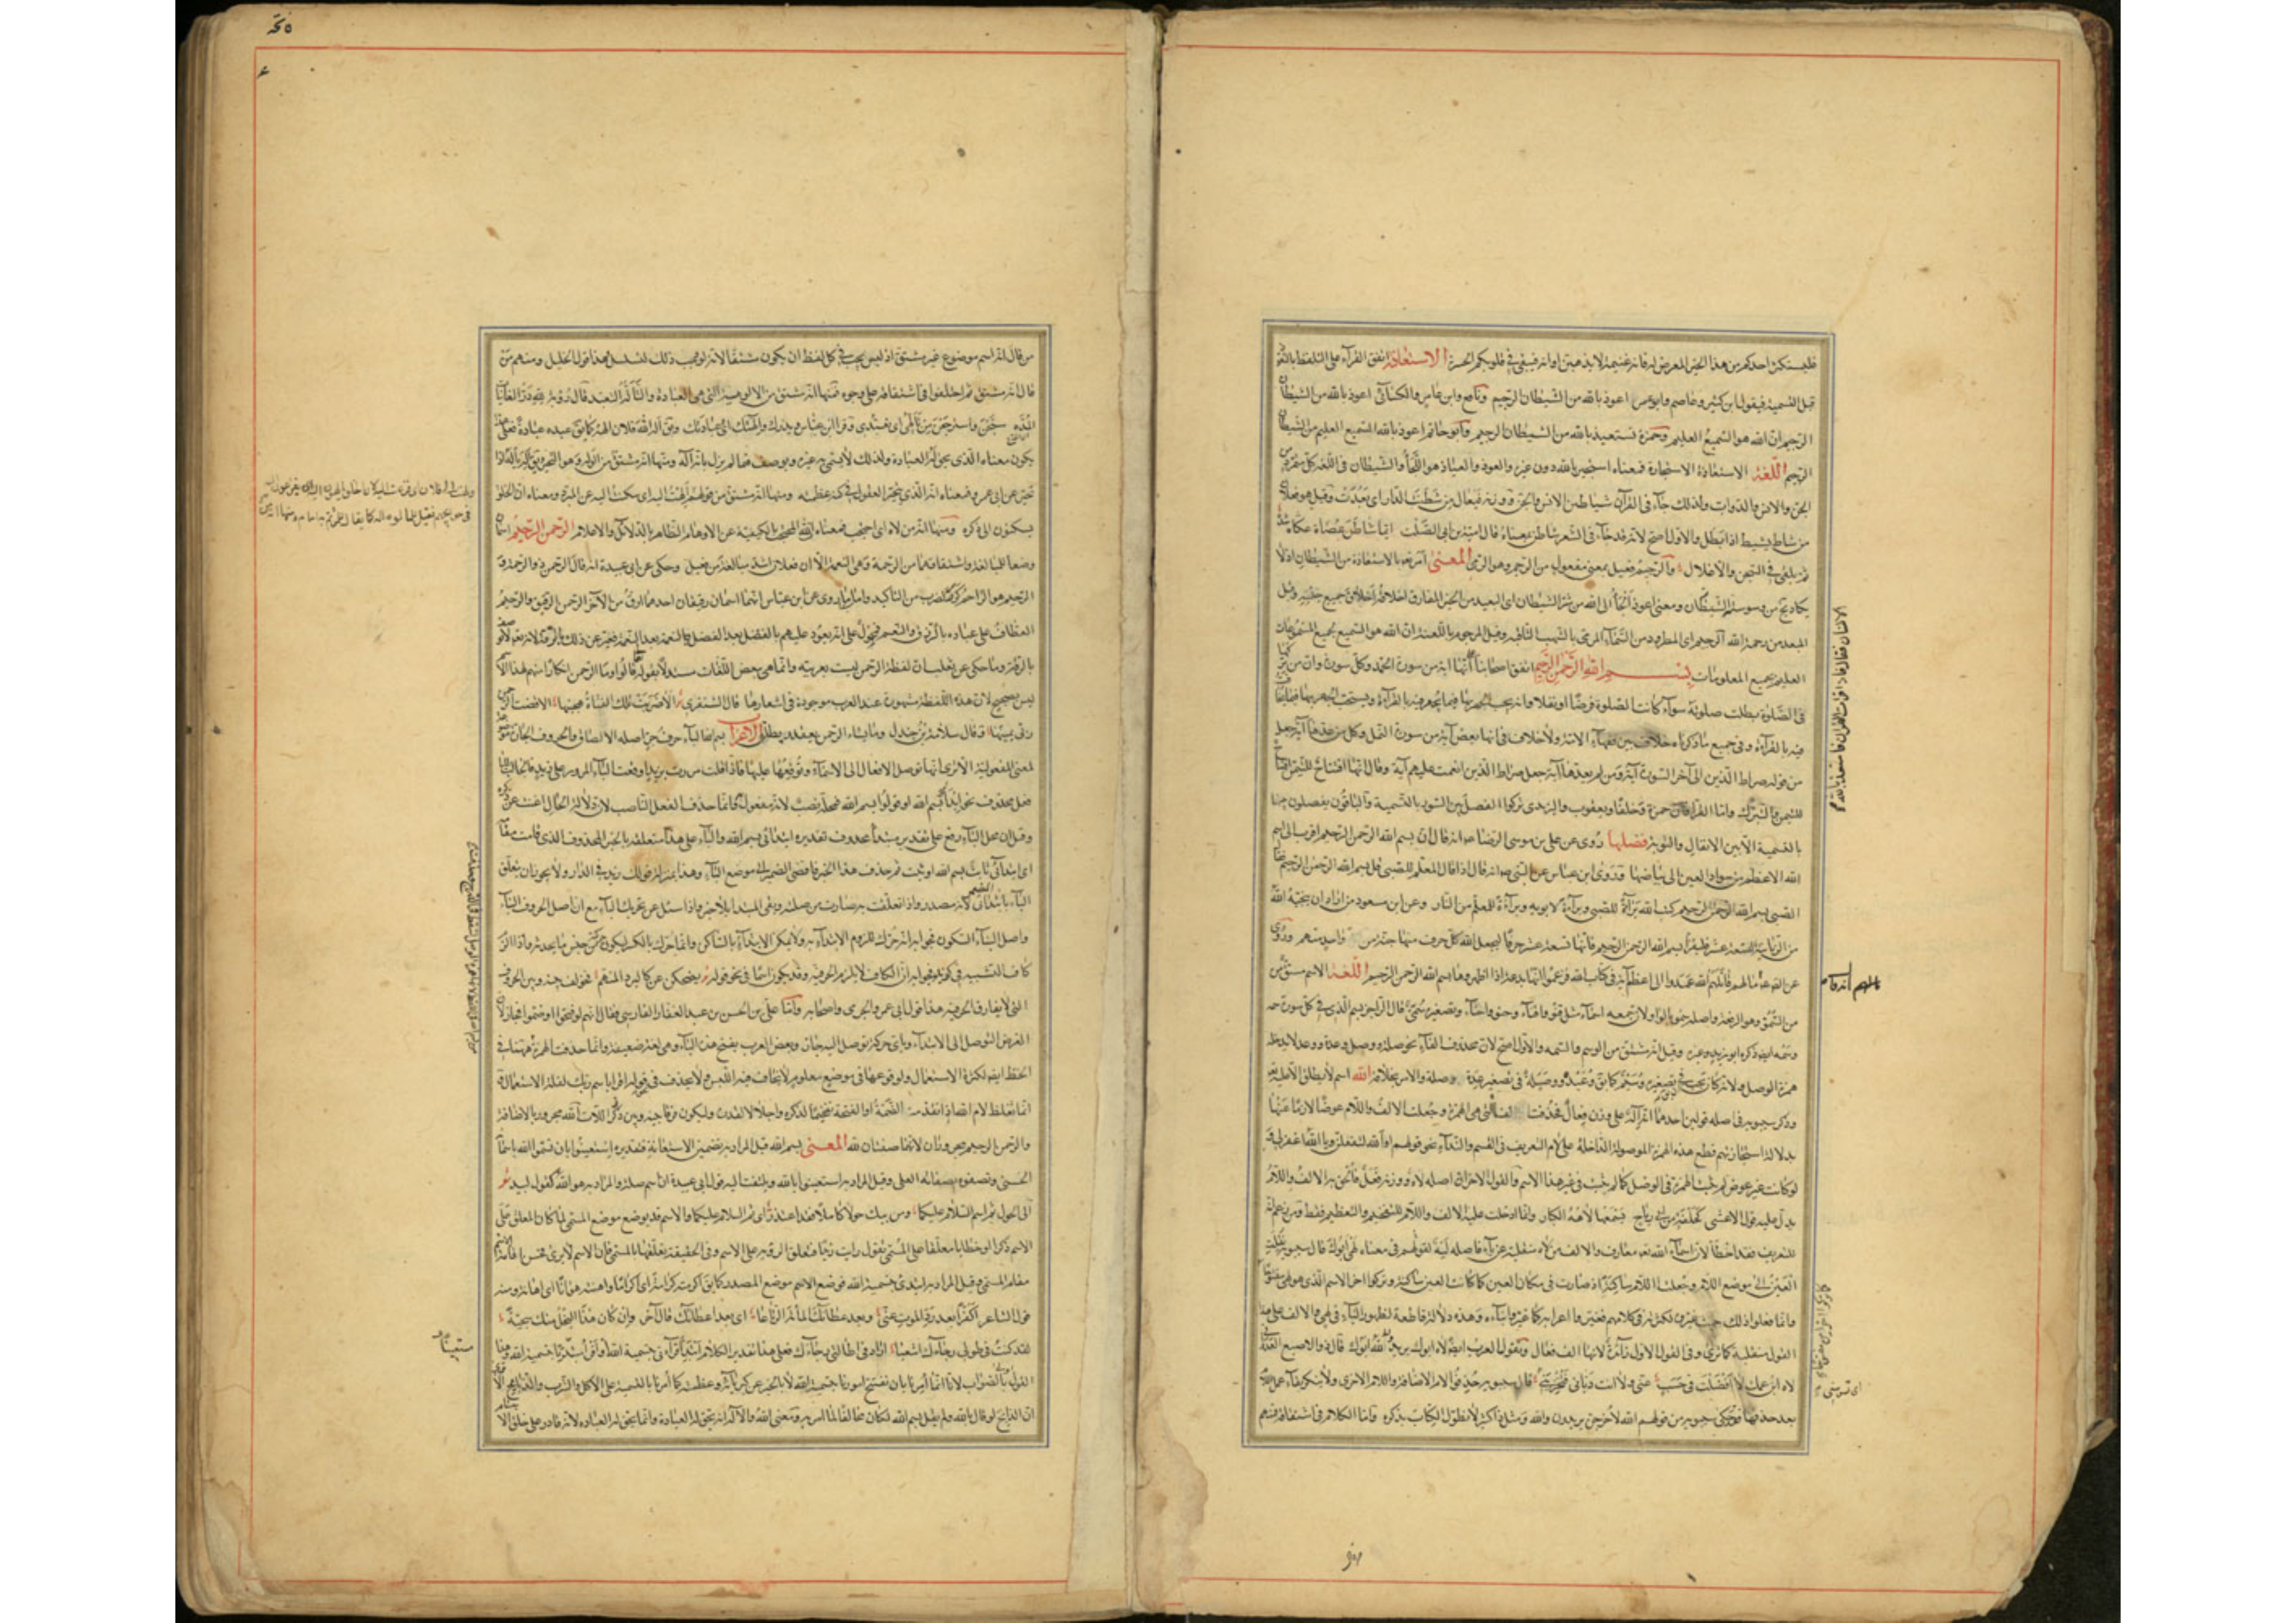 فليستكثر احدكم من هذا الخير المعرض له فانه غنيمة الاستعاذة اتفق القراء على التلفظ بالتعوذ
قبل التسمية فيقول ابن كثير وعاصم وابو عمرو اعوذ بالله من الشيطان الرجيم ونافع وابن عامر والكسائى اعوذ بالله من الشيطان
الرجيم ان الله هو السميع العليم وحمزة نستعيذ بالله من الشيطان الرجيم وابو حاتم اعوذ بالله السميع العليم من الشيطان
الرجيم اللغة الاستعاذة الاستجارة فمعناه استجير بالله دون غيره والعوذ والعياذ هو اللجأ والشيطان فى اللغة كل متمرد من
الجن والانس والدواب ولذلك جاء فى القرآن شياطين الانس والجن ووزنه فيعال من شطنت الدار اى بعدت وقيل هو فعلان
من شاط يشيط اذا بطل والاول اصح لانه قد جاء فى الشعر شاطن بمعناه قال امية بن ابى الصلت ايما شاطن عصاه عكاه
ثم يلقى فى السجن والاغلال والرجيم فعيل بمعنى مفعول من الرجم وهو الرمى المعنى امر نعوذ بالاستعاذة من الشيطان اذ لا
يكاد يخ من وسوسة الشيطان ومعنى اعوذ الجأ الى الله من شر الشيطان اى البعيد من الخير المفارق اخلاقه اخلاق جميع جنسه وقيل
المبعد من رحمة الله الرجيم اى المطرود من السماء المرمى بالشهب الثاقبة وقيل المرجوم باللعنة ان الله هو السميع بجميع المسموعات
العليم بجميع المعلومات بسم الله الرحمن الرحيم اتفق اصحابنا انها آية من سورة الحمد وكل سورة وان من تركها
فى الصلوة بطلت صلوته سواء كانت الصلوة فرضا او نفلا وانه يجب الجهر بها فيما يجهر فيه بالقراءة ويستحب الجهر بها فيما يخافت
فيه بالقراءة وفى جميع ما ذكرناه خلاف بين فقهاء الامة ولا خلاف فى انها بعض آية من سورة النمل وكل من عدها آية جعل
من قوله صراط الذين الى آخر السورة آية ومن لم يعدها آية جعل صراط الذين انعمت عليهم آية وقال انها افتتاح للتيمن
والتبرك واما القراء فان حمزة وخلفا ويعقوب واليزيدى تركوا الفصل بين السور بالتسمية والباقون يفصلون بينها
بالتسمية الا بين الانفال والتوبة فضلها روى عن على بن موسى الرضا انه قال ان بسم الله الرحمن الرحيم اقرب الى اسم
الله الاعظم من سواد العين الى بياضها وروى ابن عباس عن النبى انه قال اذا قال المعلم للصبى قل بسم الله الرحمن الرحيم
الصبى بسم الله الرحمن الرحيم كتب الله براءة للصبى وبراءة لابويه وبراءة للمعلم من النار وعن ابن مسعود من اراد ان ينجيه الله
من الزبانية التسعة عشر فليقرأ بسم الله الرحمن الرحيم فانها تسعة عشر حرفا ليجعل الله كل حرف منها جنة من واحد منهم وروى
عن الصادق ما لهم قاتلهم الله عمدوا الى اعظم آية فى كتاب الله فزعموا انها بدعة اذا اظهروها بسم الله الرحمن الرحيم اللغة الاسم مشتق من
السمو وهو الرفعة واصله سمو بالواو لان جمعه اسماء مثل قنو واقناء وحنو واحناء وتصغيره سمى قال الراجز بسم الذى فى كل سورة سمه
وسمه ايضا ذكره ابو زيد وغيره وقيل انه مشتق من الوسم والسمة والاول اصح لان محذوف الفاء نحو صلة ووصل وعدة ووعد لا يدخله
همزة الوصل ولانه كان يجب فى تصغيره وسيم كما يق وعيدة ووصيلة فى تصغير عدة وصلة والامر بخلافه الله اسم لا يطلق الا عليه
وذكر سيبويه فى اصله قولين احدهما انه الاه على وزن فعال فحذفت الفاء التى هى الهمزة وجعلت الالف واللام عوضا لازما عنها
بدلالة استجازتهم قطع هذه الهمزة الموصولة الداخلة على لام التعريف فى القسم والنداء نحو قولهم افالله لتفعلن ويا الله اغفر لى
لو كانت غير عوض لم يثبت الهمزة فى الوصل كما لم يثبت فى غير هذا الاسم والقول الآخر ان اصله لاه ووزنه فعل فالحق به الالف واللام
يدل عليه قول الاعشى كحلفة من ابى رياح يسمعها لاهه الكبار وانما ادخلت عليه الالف واللام للتفخيم والتعظيم فقط ومن زعم انها
للتعريف فقد اخطأ لان اسماء الله تعالى معارف والالف من لاه منقلبة عن ياء فاصله ليه لقولهم فى معناه لهى ابوك قال سيبويه نقلت
العين الى موضع اللام وجعلت اللام ساكنة اذ صارت فى مكان العين كما كانت العين ساكنة وتركوا آخر الاسم الذى هو لهى مفتوحا
وانما فعلوا ذلك حيث غيروه لكثرته فى كلامهم فغيروا اعرابه كما غيروا بناءه وهذه دلالة قاطعة لظهور الياء فى لهى والالف على هذا
القول منقلبة كما ترى وفى القول الاول زائدة لانها الف فعال وتقول العرب ايضا لاه ابوك يريد لله ابوك قال ذو الاصبع العدوانى
لاه ابن عمك لا افضلت فى حسب عنى ولا انت ديانى فتخزونى قال سيبويه حذفوا لام الاضافة واللام الاخرى ولا ينكر بقاء عمل اللام
بعد حذفها فقد حكى سيبويه من قولهم الله لاخرجن يريدون والله ومثل ذلك كثير لا نطول الكتاب بذكره واما الكلام فى اشتقاقه فمنهم
من قال انه اسم موضوع غير مشتق اذ ليس يجب فى كل لفظ ان يكون مشتقا لانه لو وجب ذلك لتسلسل هذا قول الخليل ومنهم من
قال انه مشتق ثم اختلفوا فى اشتقاقه على وجوه فمنها انه مشتق من الالوهية التى هى العبادة والتأله التعبد قال رؤبة لله در الغانيات
المده سبحن واسترجعن من تألهى اى تعبدى وقرأ ابن عباس ويذرك والهتك اى عبادتك ويق اله الله فلان الهة كما يق عبده عبادة فعلى هذا
يكون معناه الذى يحق له العبادة ولذلك لا يسمى به غيره ويوصف فيما لم يزل بانه اله ومنها انه مشتق من الوله وهو التحير يق اله ياله اذا
تحير عن ابى عمرو فمعناه انه الذى يتحير العقول فى كنه عظمته ومنها انه مشتق من قولهم الهت اليه اى سكنت اليه عن المبرد ومعناه ان الخلق
يسكنون الى ذكره ومنها انه من لاه اى احتجب فمعناه انه المحتجب بالكيفية عن الاوهام الظاهر بالدلائل والاعلام الرحمن الرحيم اسمان
وضعا للمبالغة واشتقاقهما من الرحمة وهى النعمة الا ان فعلان اشد مبالغة من فعيل وحكى عن ابى عبيدة انه قال الرحمن ذو الرحمة و
الرحيم هو الراحم وكرر لضرب من التاكيد واما ما روى عن ابن عباس انهما اسمان رقيقان احدهما ارق من الآخر الرحمن الرقيق والرحيم
العطاف على عباده بالرزق والنعم فمحمول على انه يعود عليهم بالفضل بعد الفضل والنعمة بعد النعمة فعبر عن ذلك بالرقة لانه لا يوصف
بالرقة وما حكى عن تغلب ان لفظة الرحمن ليست بعربية وانما هى ببعض اللغات مستدلا بقوله قالوا وما الرحمن انكارا منهم لهذا الاسم
ليس بصحيح لان هذه اللفظة مشهورة عند العرب موجودة فى اشعارها قال الشنفرى الا ضربت تلك الفتاة هجينها الا قضب الرحمن
ربى يمينها وقال سلامة بن جندل وما يشاء الرحمن يعقد ويطلق الاعراب بسم الله الباء حرف جر اصله الالصاق والحروف الجارة موضوعة
لمعنى المفعولية الا ترى انها توصل الافعال الى الاسماء وتوقعها عليها فاذا قلت مررت بزيد اوقعت الباء المرور على زيد فالجالب للباء
فعل محذوف نحو ابدأوا بسم الله او قولوا بسم الله فمحله نصب لانه مفعول به وانما حذف الفعل الناصب لان دلالة الحال اغنت عن ذكره
وقيل ان محل الباء رفع على تقدير مبتدأ محذوف تقديره ابتدائى بسم الله والباء على هذا متعلقة بالخبر المحذوف الذى قامت مقامه
اى ابتدائى ثابت بسم الله او ثبت ثم حذف هذا الخبر فافضى الضمير الى موضع الباء وهذا بمنزلة قولك زيد فى الدار ولا يجوز ان يتعلق
الباء بابتدائى المضمر لانه مصدر واذا تعلقت به صارت من صلته وبقى المبتدا بلا خبر واذا سئل عن تحريك الباء مع ان اصل الحروف البناء
واصل البناء السكون فجوابه انه حرك للزوم الابتداء به ولا يمكن الابتداء بالساكن وانما حرك بالكسر ليكون حركته من جنس ما يحدثه واذا الزم
كاف التشبيه فى كزيد فجوابه ان الكاف لا يلزم الحرفية وقد يكون اسما فى نحو قوله يضحكن عن كالبرد المنهم فخولف بينه وبين الحروف
التى لا يفارق الحرفية هذا قول ابى عمرو الجرمى واصحابه واما على بن الحسن بن عبد الغفار الفارسى فقال انهم لو فتحوا او ضموا لجاز لان
الغرض التوصل الى الابتداء وباى حركة توصل اليه جاز وبعض العرب يفتح هذه الباء وهى لغة ضعيفة وانما حذفت الهمزة هيهنا فى
الخط ايضا لكثرة الاستعمال ولوقوعها فى موضع معلوم لا يخاف فيه اللبس ولا يحذف فى نحو قوله اقرأ باسم ربك لقلة الاستعمال
انما تغلظ لام الله اذا تقدمته الضمة او الفتحة تفخيما لذكره واجلالا لقدره وليكون فرقا بينه وبين ذكر اللات الله مجرور بالاضافة
والرحمن الرحيم مجروران لانهما صفتان لله المعنى بسم الله قيل المراد به تضمين الاستعانة فتقديره استعينوا بان تسموا الله باسمائه
الحسنى وتصفوه بصفاته العلى وقيل المراد به استعينوا بالله ويلتفت اليه قول ابى عبيدة ان الاسم صلة والمراد به هو الله كقول لبيد
الى الحول ثم اسم السلام عليكما ومن يبك حولا كاملا فقد اعتذر اى ثم السلام عليكما والاسم قد يوضع موضع المسمى لما كان المعلق على
الاسم ذكرا او خطابا معلقا على المسمى يقول رأيت زيدا فتعلق الرؤية على الاسم وفى الحقيقة تعلقها بالمسمى فان الاسم لا يرى
مقام المسمى وقيل المراد به ابتدئ بتسمية الله فوضع الاسم موضع المصدر كما يق اكرمته كرامة اى اكراما واهنته هوانا اى اهانة ومنه
قول الشاعر اكفرا بعد رد الموت عنى وبعد عطائك المائة الرتاعا اى بعد اعطائك وقال الآخر وان كان هذا البخل منك سجية
لقد كنت فى طولى رجاءك اشعبا اراد فى اطالتى رجاءك فعلى هذا تقدير الكلام ابتداء قراءتى بتسمية الله او اقرأ مبتدئا بتسمية الله وهذا
القول اولى بالصواب لانا انما امرنا بان نفتتح امورنا بتسمية الله لا بالخبر عن كبريائه وعظمته كما امرنا بالتسمية على الاكل والشرب والذبائح الا ترى
ان الذابح لو قال بالله ولم يقل بسم الله لكان مخالفا لما امر به ومعنى الله والاله انه يحق له العبادة وانما يحق له العبادة لانه قادر على خلق